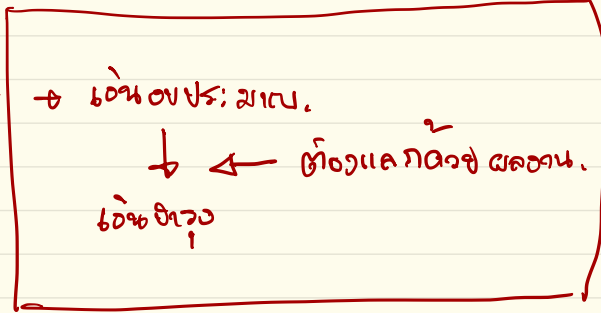 → เงินงบประมาณ.
↓ ← ต้องแลกด้วย ผลงาน.
เงินบำรุง